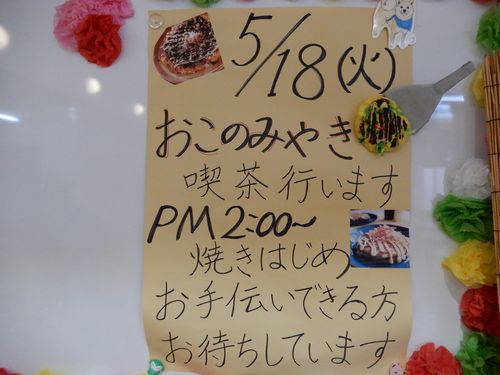 5/18(火)
おこのみやき
喫茶行います
PM2:00~
焼きはじめ
お手伝いできる方
お待ちしています